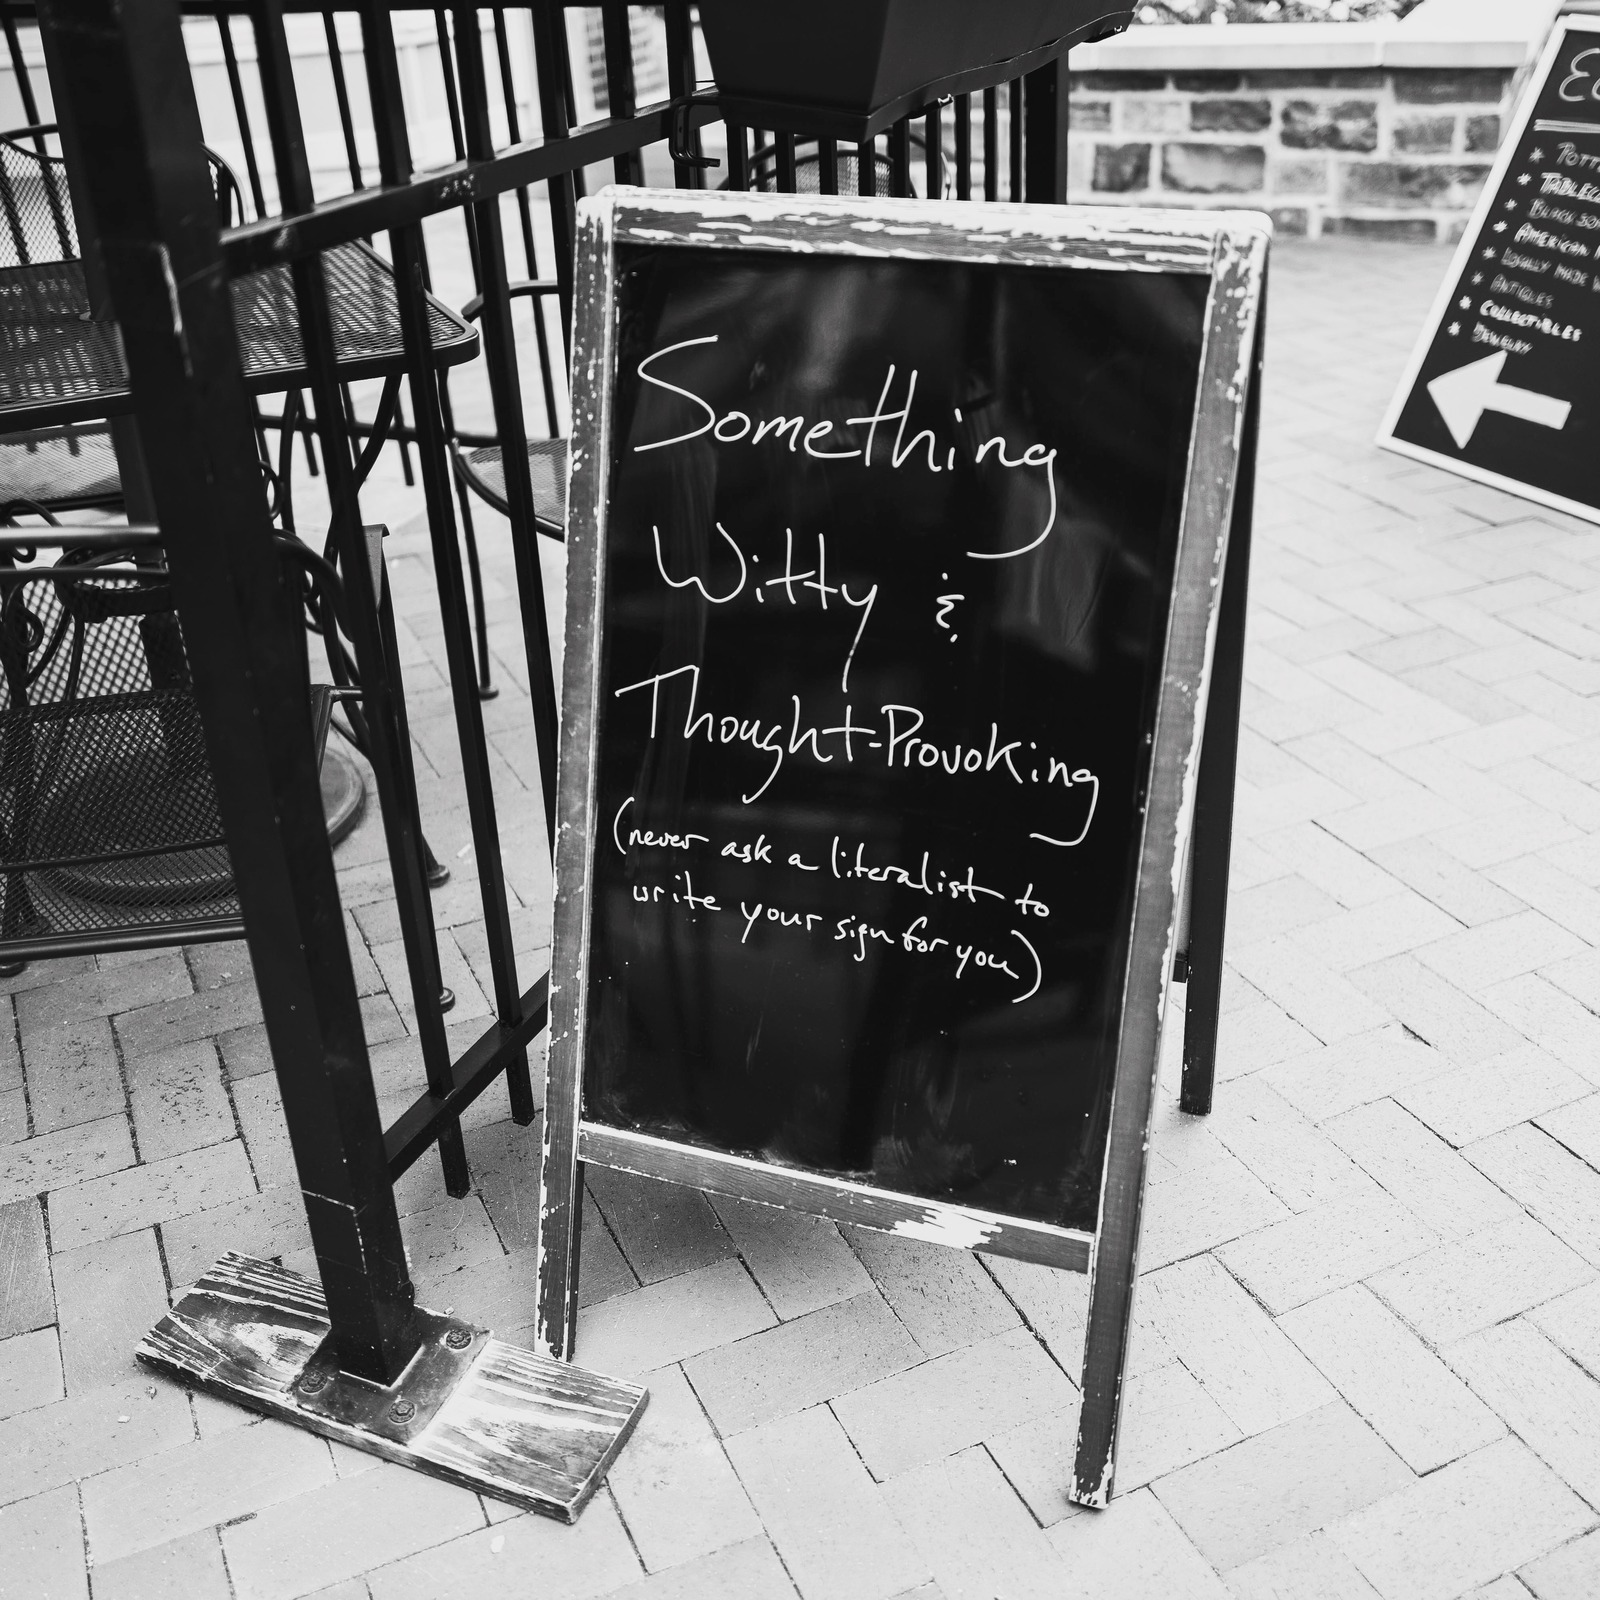 Something
Witty &
Thought-Provoking
(never ask a literalist to
write your sign for you)
* TABLEC
* AMERICAN
* LOCALLY MADE W
* ANTIQUES
* COLLECTIBLES
* JEWELRY